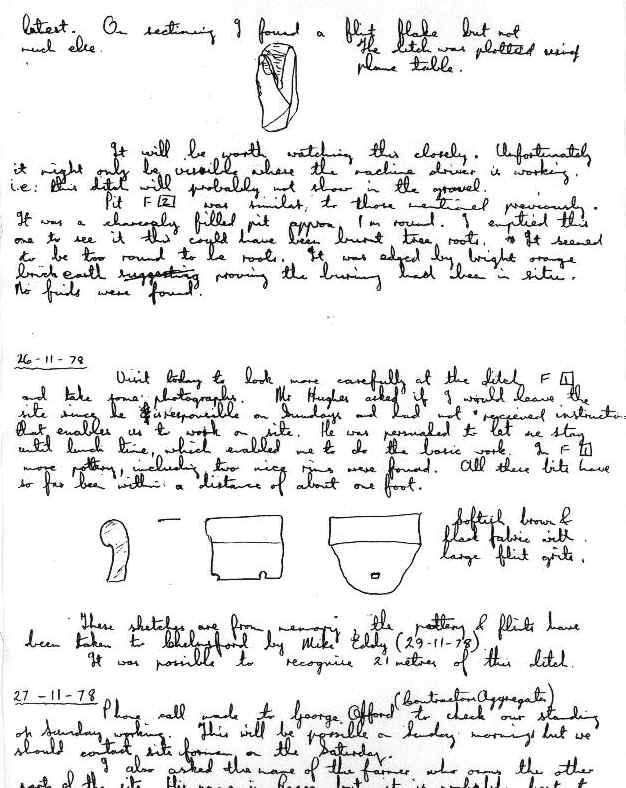 latest. On sectioning I found a flint flake but not
much else.
The ditch was plotted using
plane table.
It will be worth watching this closely. Unfortunately
it might only be visible where the machine driver is working.
i.e: this ditch will probably not show in the gravel.
Pit F [2] was similar to those mentioned previously.
It was a charcoaly filled pit approx 1m round. I emptied this
one to see if this could have been burnt tree roots. It seemed
to be too round to be roots. It was edged by bright orange
brickearth suggesting proving the burning had been in situ.
No finds were found.
26-11-78
Visit today to look more carefully at the ditch F [1]
and take some photographs. Mr Hughes asked if I would leave the
site since he is responsible on Sundays and had not receieved instructions
that enables us to work on site. He was persuaded to let me stay
until lunch time, which enabled me to do the basic work. In F [1]
more pottery, including two nice rims were found. All these bits have
so far been within a distance of about one foot.
Softish brown &
black fabric with
large flint grits.
These sketches are from memory, the pottery & flints have
been taken to Chelmsford by Mike Eddy (29-11-78)
It was possible to recognise 21 metres of this ditch.
27-11-78
(Contractor Aggregates)
Phone call made to George Offord to check our standing
on Sunday working. This will be possible on Sunday mornings but we
should contact site foreman on the Saturday.
I also asked the name of the farmer who owns the other
parts of the site. His name is but it is probably best to